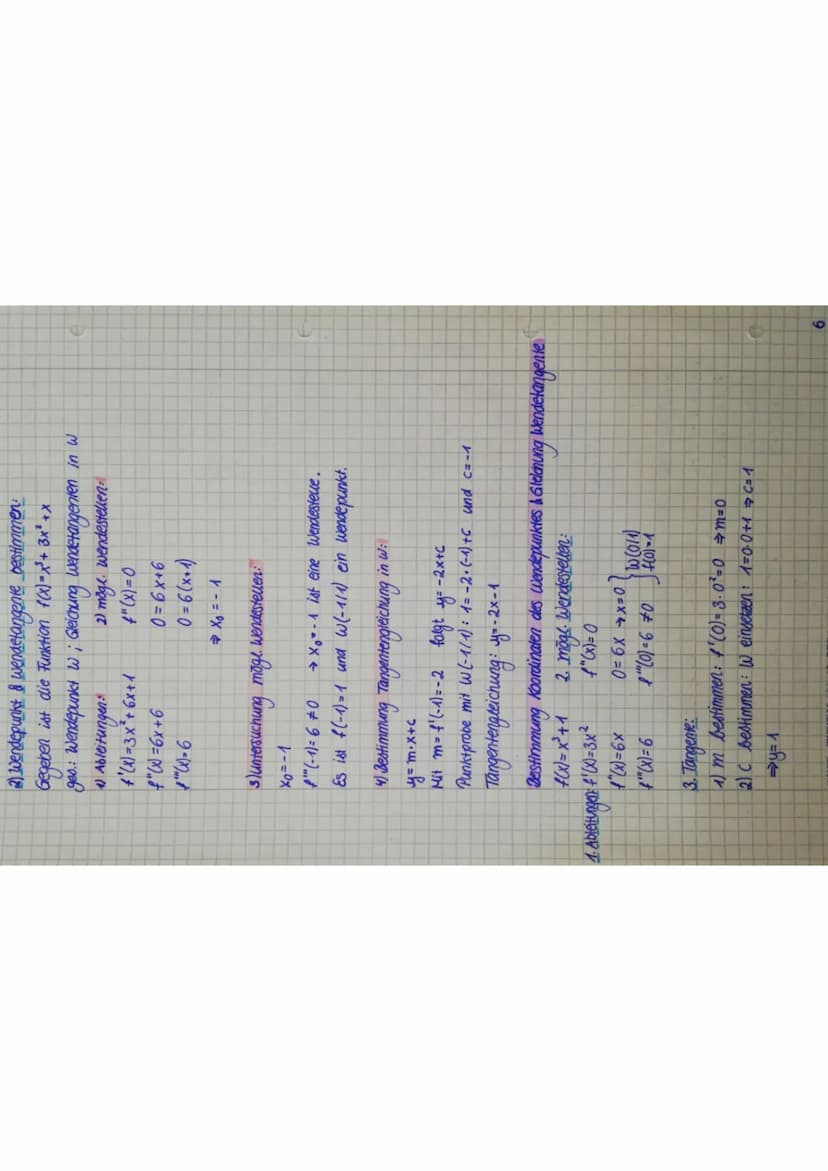 2) Wendepunkt & Wendetangente bestimmen:
Gegeben ist die Funktion f(x)=x³+3x²+x
ges.: Wendepunkt W ; Gleichung Wendetangenten in W
1) Ableitungen: 2) mögl. Wendestellen:
f'(x)=3x²+6x+1 f''(x)=0
f''(x)=6x+6 0=6x+6
f'''(x)=6 0=6(x+1)
⇒ x₀=-1
3) Untersuchung mögl. Wendestellen:
x₀=-1
f'''(-1)=6≠0 → x₀=-1 ist eine Wendestelle.
Es ist f(-1)=1 und W(-1/1) ein Wendepunkt.
4) Bestimmung Tangentengleichung in W:
y=m·x+c
Mit m=f'(-1)=-2 folgt y=-2x+c
Punktprobe mit W(-1/1): 1=-2·(-1)+c und c=-1
Tangentengleichung: y=-2x-1
Bestimmung Koordinaten des Wendepunktes & Gleichung Wendetangente
f(x)=x³+1 2. mögl. Wendestellen:
1. Ableitungen: f'(x)=3x² f''(x)=0
f''(x)=6x 0=6x → x=0 } W(0/1)
f'''(x)=6 f'''(0)=6≠0 f(0)=1
3. Tangente:
1) m bestimmen: f'(0)=3·0²=0 ⇒ m=0
2) c bestimmen: W einsetzen: 1=0·0+1 ⇒ c=1
⇒ y=1
6